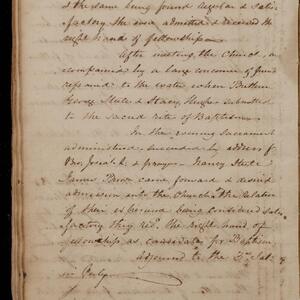 & the same being found regular & satis-
factory she was admitted & received the
right hand of fellowship
After meeting, the Church, a
companied by a large concourse of friends
repaired to the water when Brethren
George Stute & Stacey submitted
to the sacred rite of Baptism
In the evening Sacrament
administered, succeeded by address f
Bro, Josiah & prayer. Nancy Stute &
James Brown came forward & desired
admission into the Church the Relation
of their experience being considered satis
factory they recd. the right hand of
fellowship as candidates for Baptism
adjourned to the 3d Sab
in July